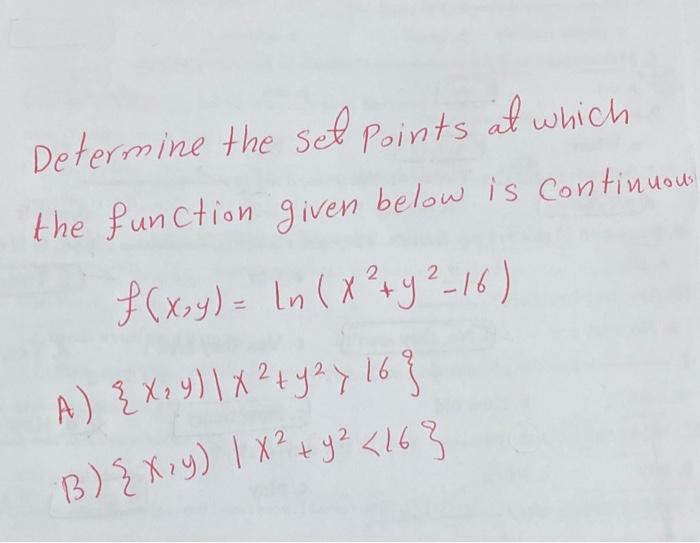 Determine the set Points at which
the function given below is continuous
f(x,y) = ln(x²+y²-16)
A) {x,y)|x²+y²>16}
B) {x,y) | x² + y² <16}